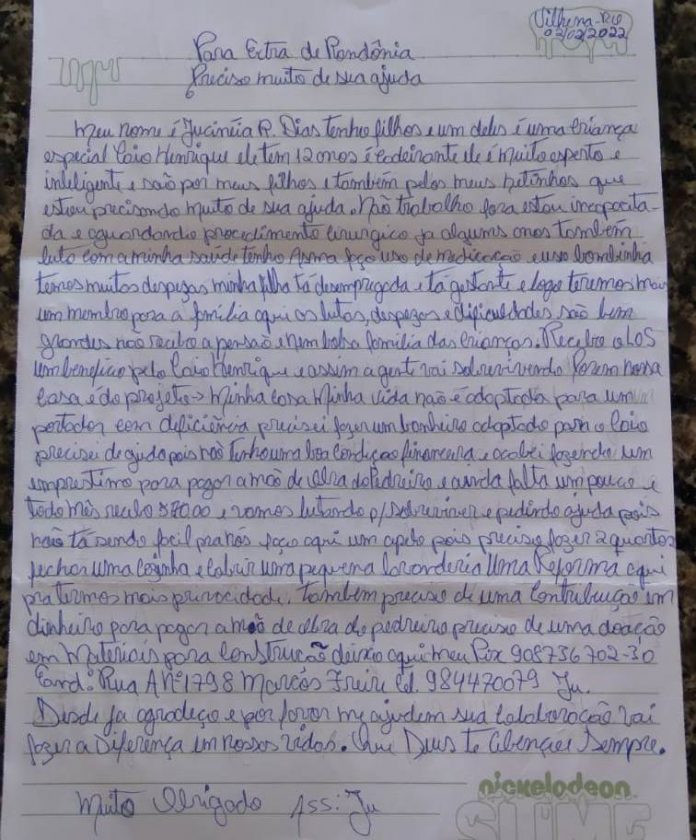 Vilhena-RO
02/02/2022
Para Extra de Rondônia
Preciso muito de sua ajuda
Meu nome é Jucinéia R. Dias tenho filhos e um deles é uma criança
especial Caio Henrique ele tem 12 anos é cadeirante ele é muito esperto e
inteligente e são por meus filhos e também pelos meus netinhos que
estou precisando muito de sua ajuda. Não trabalho fora estou incapacita-
da e aguardando procedimento cirurgico ja alguns anos também
luto com a minha saúde tenho Asma faço uso de medicação e uso bombinha
temos muitas despezas minha filha tá desempregada e tá gestante e logo teremos mais
um membro para a família aqui as lutas, despezas e dificuldades são bem
grandes não recebo a pensão e nem bolsa família das crianças. Recebo o LOS
um beneficio pelo Caio Henrique e assim a gente vai sobrevivendo Porem nossa
casa é do projeto → Minha casa Minha vida não é adaptada para um
portador com deficiência precisei fazer um banheiro adaptado para o Caio
precisei de ajuda pois não tenho uma boa condição financeira e acabei fazendo um
emprestimo para pagar a mão de obra do Pedreiro e ainda falta um pouco e
todo mês recebo 870.00 e vamos lutando p/ sobreviver e pedindo ajuda pois
não tá sendo facil pra nós faço aqui um apelo pois preciso fazer 2 quartos
fechar uma cozinha e cobrir uma pequena lavanderia Uma Reforma aqui
pra termos mais privacidade. Também preciso de uma contribuição em
dinheiro para pagar a mão de obra do pedreiro preciso de uma doação
em Materiais para Construção deixo aqui meu Pix 908736702-30
End: Rua A Nº 1798 Marcos Freire Cel. 984470079 Ju.
Desde ja agradeço e por favor me ajudem sua colaboração vai
fazer a Diferença em nossas vidas. Que Deus te Abençoe Sempre.
Muito Obrigado Ass: Ju
nickelodeon
SLIME